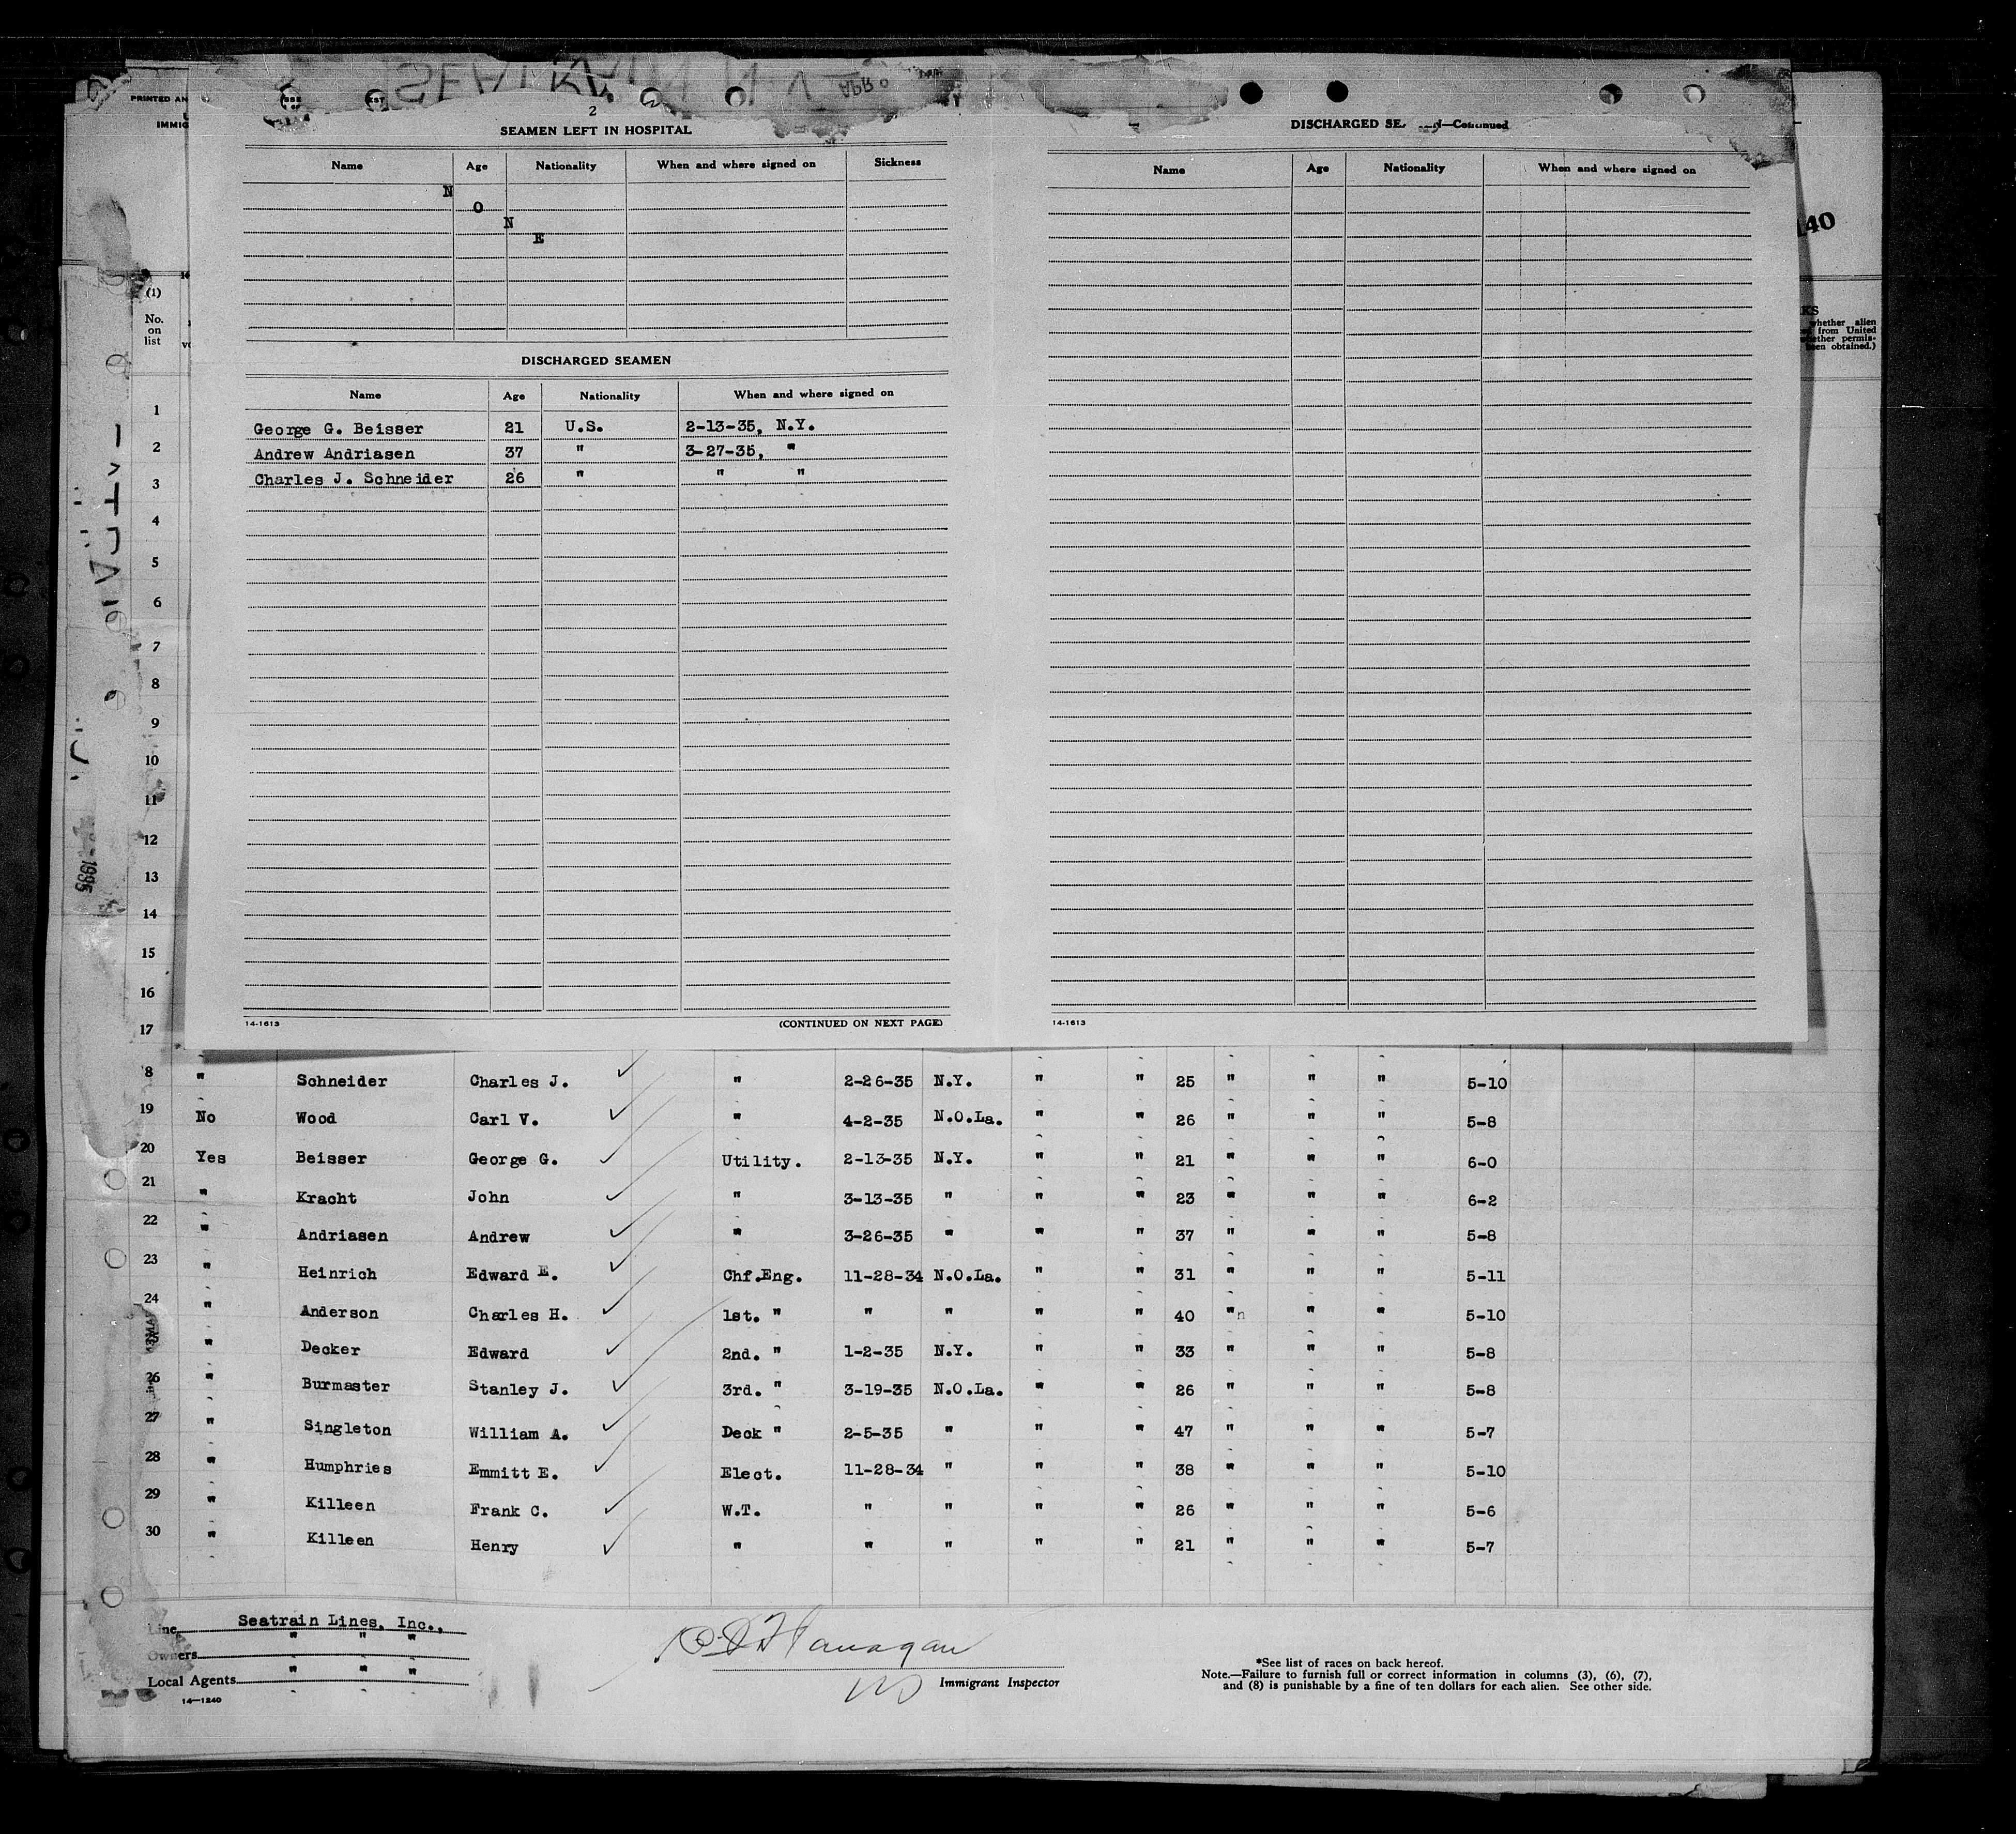 2
SEAMEN LEFT IN HOSPITAL
Name Age Nationality When and where signed on Sickness
N
O
N
E
DISCHARGED SEAMEN
Name Age Nationality When and where signed on
George G. Beisser 21 U.S. 2-13-35, N.Y.
Andrew Andriasen 37 " 3-27-35, "
Charles J. Schneider 26 " " "
14-1613 (CONTINUED ON NEXT PAGE)
DISCHARGED —Continued
Name Age Nationality When and where signed on
14-1613
PRINTED AN
IMMIG
140
(1)
No.
on
list
KS
whether alien
from United
whether permis-
been obtained.)
1
2
3
4
5
6
7
8
9
10
11
12
13
14
15
16
17
1935
8 " Schneider Charles J. " 2-26-35 N.Y. " " 25 " " " 5-10
19 No Wood Carl V. " 4-2-35 N.O.La. " " 26 " " " 5-8
20 Yes Beisser George G. Utility. 2-13-35 N.Y. " " 21 " " " 6-0
21 " Kracht John " 3-13-35 " " " 23 " " " 6-2
22 " Andriasen Andrew " 3-26-35 " " " 37 " " " 5-8
23 " Heinrich Edward E. Chf.Eng. 11-28-34 N.O.La. " " 31 " " " 5-11
24 " Anderson Charles H. 1st. " " " " " 40 "n " " 5-10
" Decker Edward 2nd. " 1-2-35 N.Y. " " 33 " " " 5-8
26 " Burmaster Stanley J. 3rd. " 3-19-35 N.O.La. " " 26 " " " 5-8
27 " Singleton William A. Deck " 2-5-35 " " " 47 " " " 5-7
28 " Humphries Emmitt E. Elect. 11-28-34 " " " 38 " " " 5-10
29 " Killeen Frank C. W.T. " " " " 26 " " " 5-6
30 " Killeen Henry " " " " " 21 " " " 5-7
Line Seatrain Lines, Inc.,
Owners " " "
Local Agents " " "
14—1240
Flanagan
Immigrant Inspector
*See list of races on back hereof.
Note.—Failure to furnish full or correct information in columns (3), (6), (7),
and (8) is punishable by a fine of ten dollars for each alien. See other side.